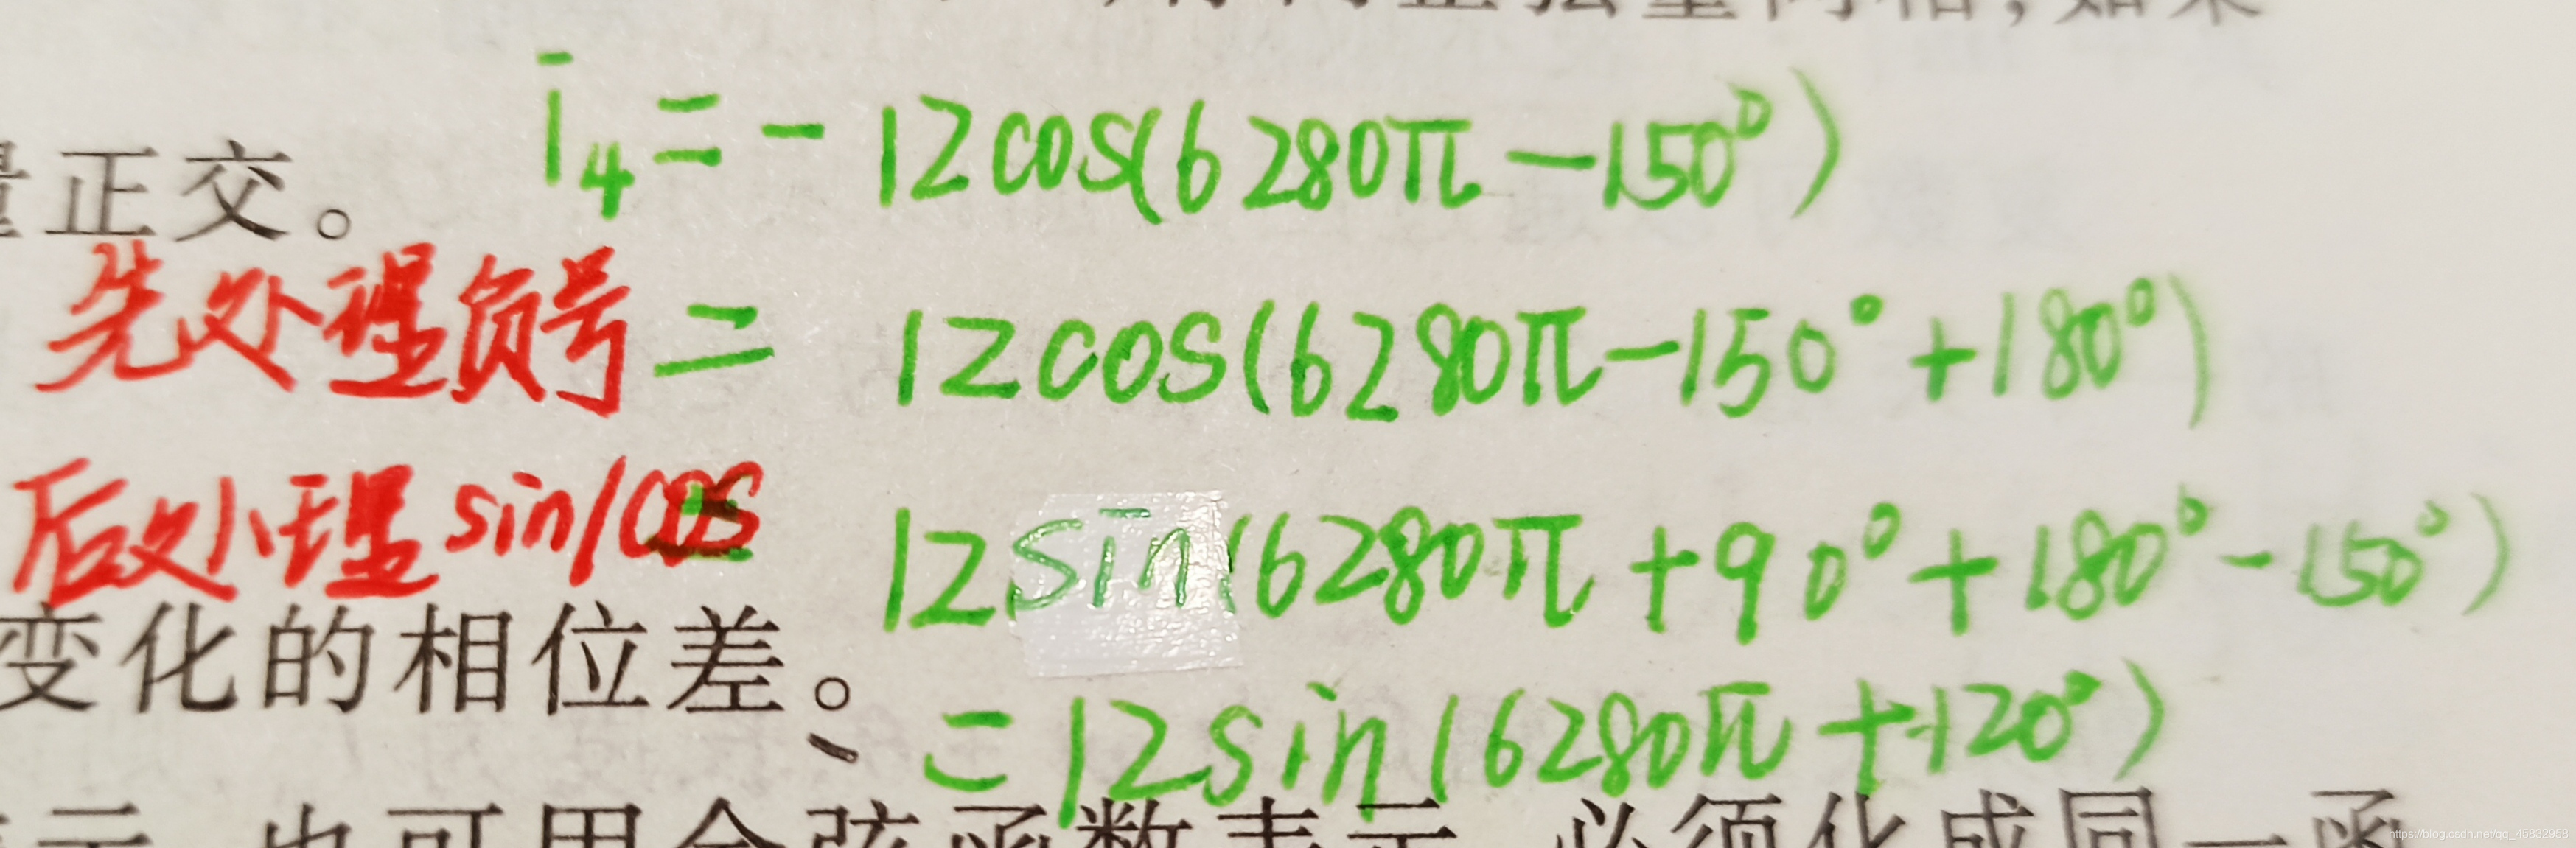 i₄ = - 12cos(6280π - 150°)
量正交。
先处理负号 = 12cos(6280π - 150° + 180°)
后处理sin/cos = 12sin(6280π + 90° + 180° - 150°)
变化的相位差。
= 12sin(6280π + 120°)
表示,也可用余弦函数表示,必须化成同一函
https://blog.csdn.net/qq_45832958